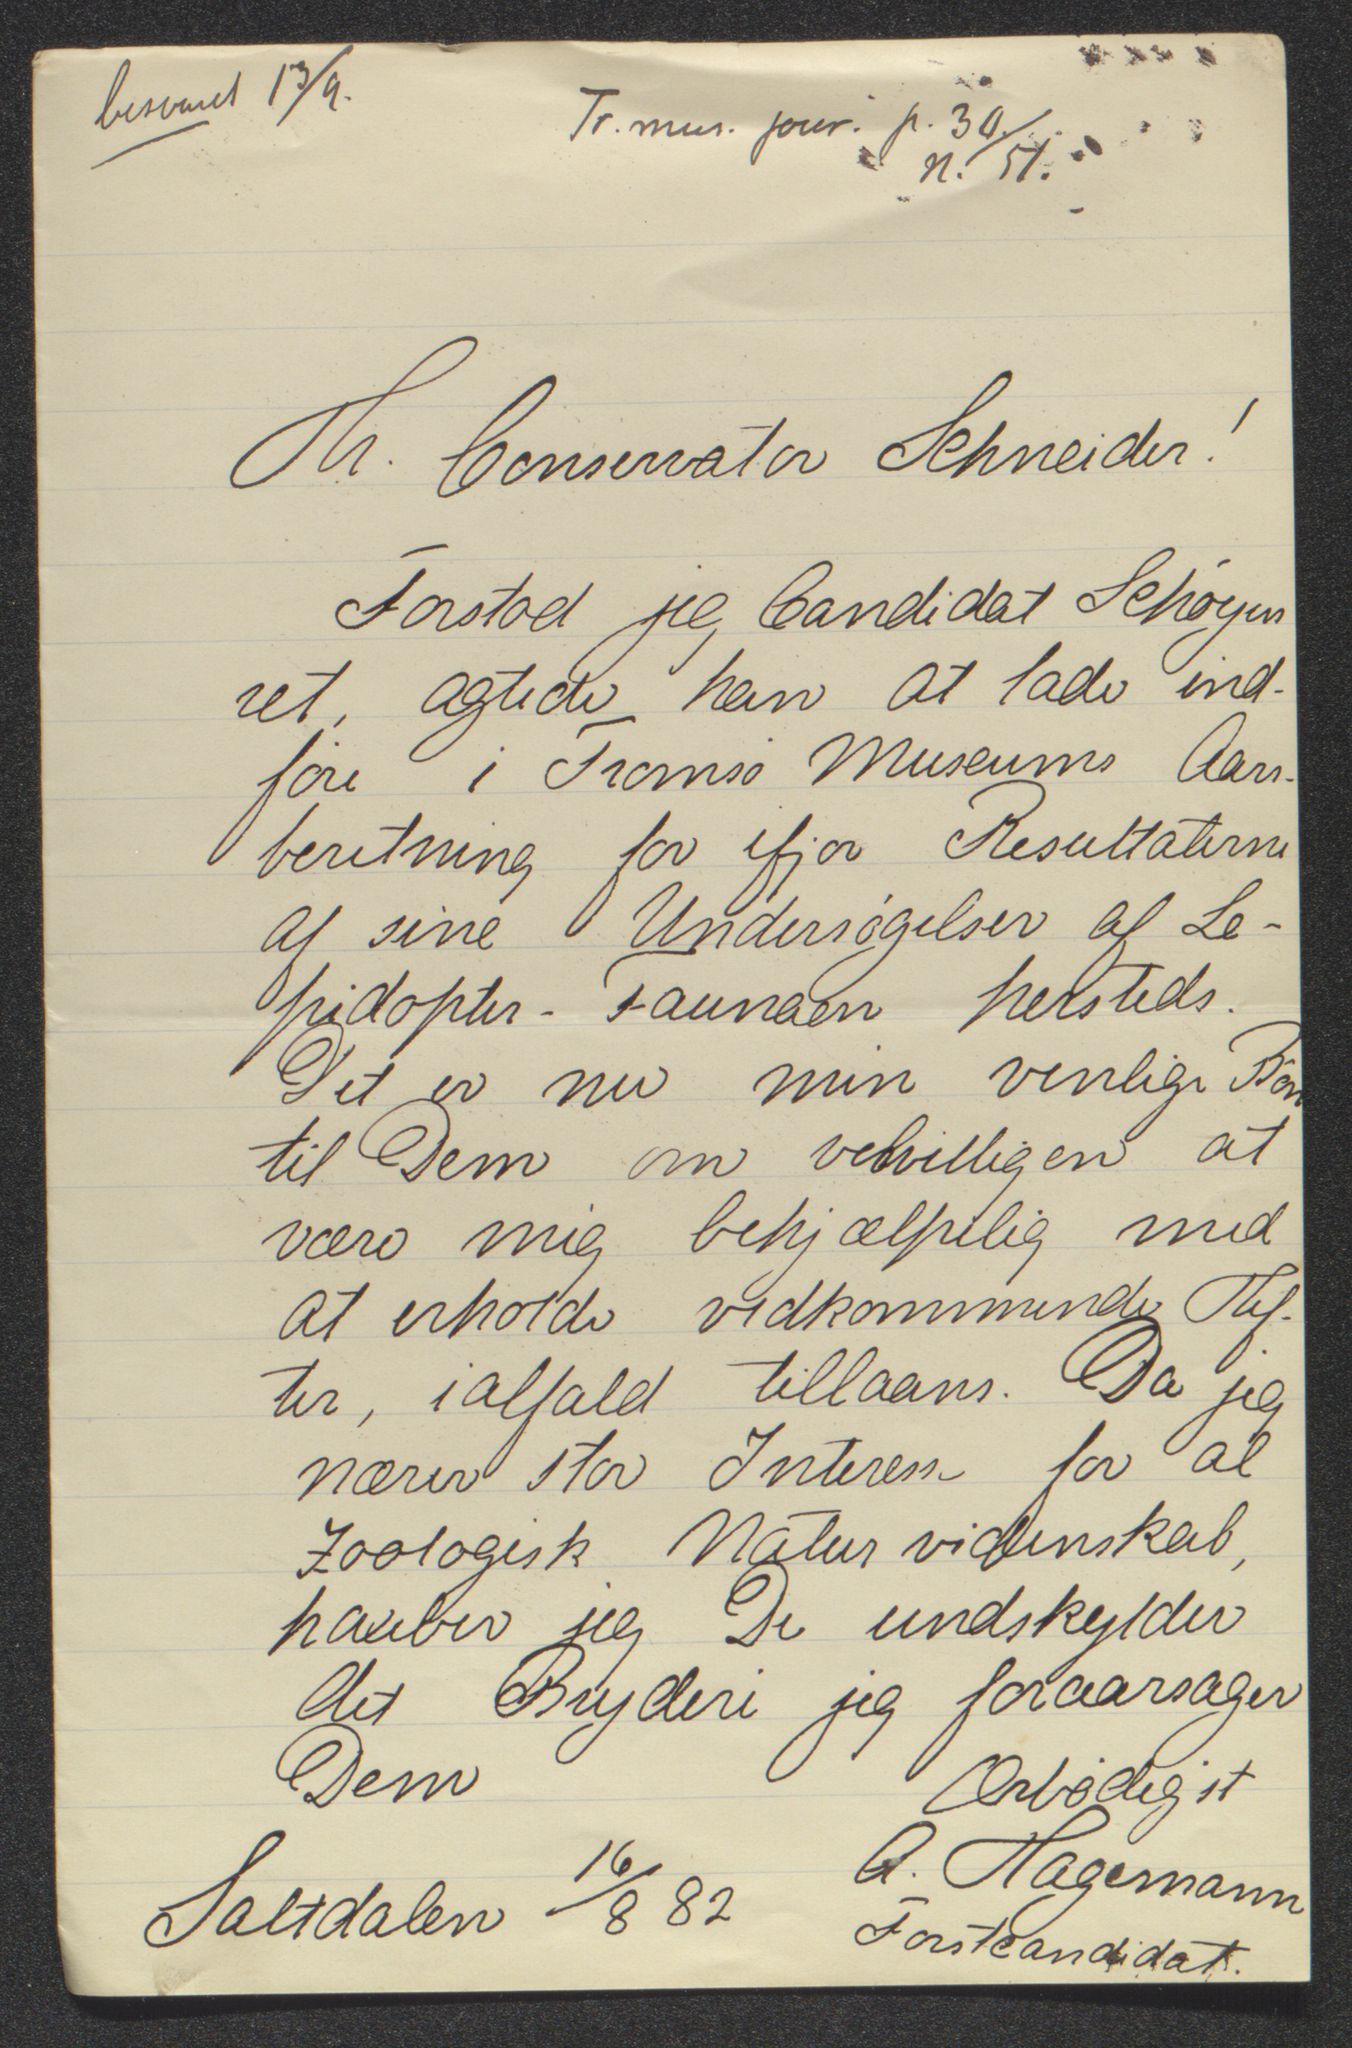 besvaret 13/9.
Tr. mus. jour. p. 30/
n. 51.
Hr. Conservator Schneider!
Forstod jeg Candidat Schøyen
ret, agtede han at lade ind-
føre i Tromsø Museums Aars-
beretning for ifjor Resultaterne
af sine Undersøgelser af Le-
pidopter-Faunaen hersteds.
Det er nu min venlige Bøn
til Dem om velvilligen at
være mig behjælpelig med
at erholde vedkommende Hef-
ter, ialfald tillaans. Da jeg
nærer stor Interesse for al
zoologisk Naturvidenskab,
haaber jeg De undskylder
det Bryderi jeg foraarsager
Dem
Ærbødigst
A. Hagemann
Forstcandidat.
Saltdalen 16/8 82